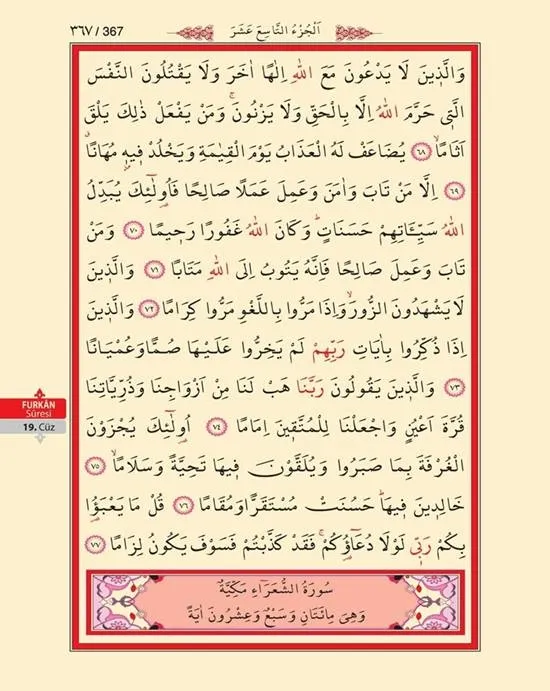 ٣٦٧ / 367
اَلْجُزْءُ التَّاسِعَ عَشَرَ
وَالَّذٖينَ لَا يَدْعُونَ مَعَ اللّٰهِ اِلٰهًا اٰخَرَ وَلَا يَقْتُلُونَ النَّفْسَ
الَّتٖى حَرَّمَ اللّٰهُ اِلَّا بِالْحَقِّ وَلَا يَزْنُونَۚ وَمَنْ يَفْعَلْ ذٰلِكَ يَلْقَ
اَثَامًاۙ ﴿٦٨﴾ يُضَاعَفْ لَهُ الْعَذَابُ يَوْمَ الْقِيٰمَةِ وَيَخْلُدْ فٖيهٖ مُهَانًاۗ
﴿٦٩﴾ اِلَّا مَنْ تَابَ وَاٰمَنَ وَعَمِلَ عَمَلًا صَالِحًا فَاُولٰٓئِكَ يُبَدِّلُ
اللّٰهُ سَيِّـَٔاتِهِمْ حَسَنَاتٍؕ وَكَانَ اللّٰهُ غَفُورًا رَحٖيمًا ﴿٧٠﴾ وَمَنْ
تَابَ وَعَمِلَ صَالِحًا فَاِنَّهُ يَتُوبُ اِلَى اللّٰهِ مَتَابًا ﴿٧١﴾ وَالَّذٖينَ
لَا يَشْهَدُونَ الزُّورَۙ وَاِذَا مَرُّوا بِاللَّغْوِ مَرُّوا كِرَامًا ﴿٧٢﴾ وَالَّذٖينَ
اِذَا ذُكِّرُوا بِاٰيَاتِ رَبِّهِمْ لَمْ يَخِرُّوا عَلَيْهَا صُمًّا وَعُمْيَانًا
﴿٧٣﴾ وَالَّذٖينَ يَقُولُونَ رَبَّنَا هَبْ لَنَا مِنْ اَزْوَاجِنَا وَذُرِّيَّاتِنَا
قُرَّةَ اَعْيُنٍ وَاجْعَلْنَا لِلْمُتَّقٖينَ اِمَامًا ﴿٧٤﴾ اُولٰٓئِكَ يُجْزَوْنَ
الْغُرْفَةَ بِمَا صَبَرُوا وَيُلَقَّوْنَ فٖيهَا تَحِيَّةً وَسَلَامًاۙ ﴿٧٥﴾
خَالِدٖينَ فٖيهَاؕ حَسُنَتْ مُسْتَقَرًّا وَمُقَامًا ﴿٧٦﴾ قُلْ مَا يَعْبَؤُا
بِكُمْ رَبّٖى لَوْلَا دُعَاؤُ۬كُمْۚ فَقَدْ كَذَّبْتُمْ فَسَوْفَ يَكُونُ لِزَامًا ﴿٧٧﴾
سُورَةُ الشُّعَرَاءِ مَكِّيَّةٌ
وَهِىَ مِائَتَانِ وَسَبْعٌ وَعِشْرُونَ اٰيَةً
FURKÂN
Sûresi
19. Cüz